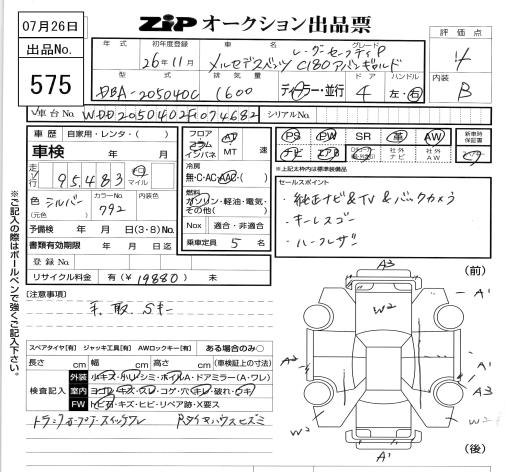 07月26日
ZiP オークション出品票
出品No.
575
年式 初年度登録 車名 グレード 評価点
26年11月 メルセデスベンツ C180アバンギャルド レーダーセーフティP 4
型式 排気量 ドア ハンドル 内装
DBA-205040C 1600 ディーラー・並行 4 左・右 B
車台No. WDD2050402F074682 シリアルNo.
車歴 自家用・レンタ・( )
車検 年 月
走行 95,483 キロ マイル
色(元色) シルバー カラーNo. 792
予備検 年 月 日(3・8)の
書類有効期限 年 月 日迄
登録No.
リサイクル料金 有(¥19880) 未
フロア コラム インパネ AT MT 速
冷房 無・C・AC・AAC・( )
燃料 ガソリン・軽油・電気・その他( )
Nox 適合・非適合
乗車定員 5 名
PS PW SR 革 AW 新車時保証書
ナビ エアB 社外ナビ 社外AW
*上記太枠内は標準装備品
セールスポイント
・純正ナビ&TV&バックカメラ
・キーレスゴー
・ハーフレザー
[注意事項]
手、取、Sキー
スペアタイヤ[有] ジャッキ工具[有] AWロックキー[有] ある場合のみ○
長さ cm 幅 cm 高さ cm (車検証上の寸法)
検査記入
外装 小キズ・小ヘコ・シミ・ホイルA・ドアミラー(A・ワレ)
室内 ヨゴレ・キズ・スレ・コゲ・穴・キレ・破れ・ウキ
FW トビ石・キズ・ヒビ・リペア跡・X要ス
トランクオープナースイッチワレ Rタイヤハウスヒズミ
※ご記入の際はボールペンで強くご記入下さい。
(前)
A3
A1
W2
A2
A3
A3
W3
W2
A1
(後)